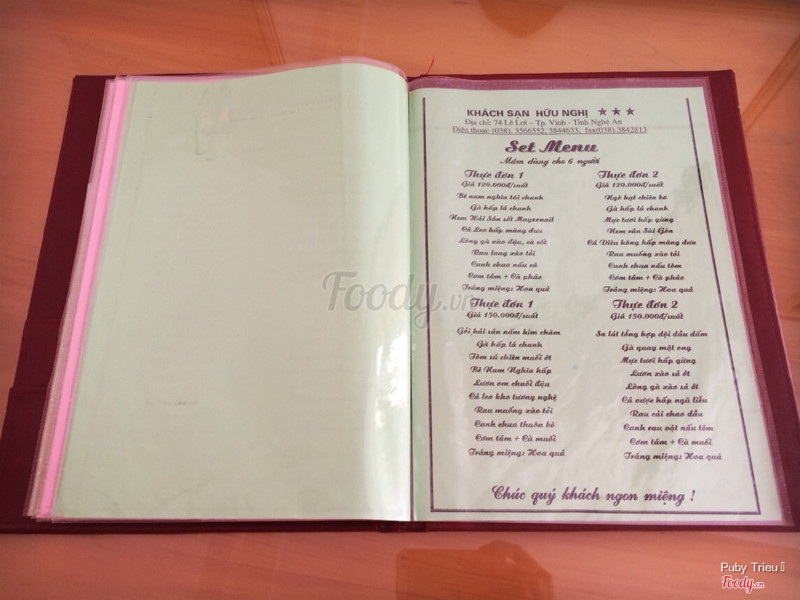 KHÁCH SẠN HỮU NGHỊ ★ ★ ★
Địa chỉ: 74 Lê Lợi – Tp. Vinh – Tỉnh Nghệ An
Điện thoại: (038). 3566552, 3844633, fax(038).3842813
Set Menu
Mâm dùng cho 6 người
Thực đơn 1
Giá 120.000đ/suất
Bê nam nghĩa tái chanh
Gà hấp lá chanh
Nem Hải Sản sốt Mayzonail
Cá Leo hấp măng dưa
Lòng gà xào đậu, cà rốt
Rau lang xào tỏi
Canh chua nấu cá
Cơm tám + Cà pháo
Tráng miệng: Hoa quả
Thực đơn 2
Giá 120.000đ/suất
Ngô hạt chiên bơ
Gà hấp lá chanh
Mực tươi hấp gừng
Nem rán Sài Gòn
Cá Diêu hồng hấp măng dưa
Rau muống xào tỏi
Canh chua nấu tôm
Cơm tám + Cà pháo
Tráng miệng: Hoa quả
Thực đơn 1
Giá 150.000đ/suất
Gỏi hải sản nấm kim châm
Gà hấp lá chanh
Tôm sú chiên muối ớt
Bê Nam Nghĩa hấp
Lươn om chuối đậu
Cá leo kho tương nghệ
Rau muống xào tỏi
Canh chua thuôn bò
Cơm tám + Cà muối
Tráng miệng: Hoa quả
Thực đơn 2
Giá 150.000đ/suất
Sa lát tổng hợp dội dầu dấm
Gà quay mật ong
Mực tươi hấp gừng
Lươn xào sả ớt
Lòng gà xào sả ớt
Cá vược hấp ngũ liễu
Rau cải chao dầu
Canh rau vặt nấu tôm
Cơm tám + Cà muối
Tráng miệng: Hoa quả
Chúc quý khách ngon miệng !
Foody.vn
Puby Trieu
Foody.vn